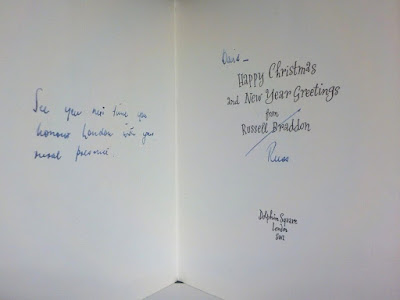 See you nex time you
honour London with your
presence.
David –
Happy Christmas
and New Year Greetings
from
Russell Braddon
Russ
Dolphin Square
London
SW1